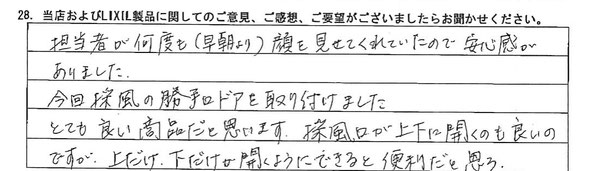 28. 当店およびLIXIL製品に関してのご意見、ご感想、ご要望がございましたらお聞かせください。
担当者が何度も(早朝より)顔を見せてくれていたので安心感が
ありました.
今回採風の勝手口ドアを取り付けました
とても良い商品だと思います. 採風口が上下に開くのも良いの
ですが. 上だけ. 下だけが開くようにできると便利だと思う.